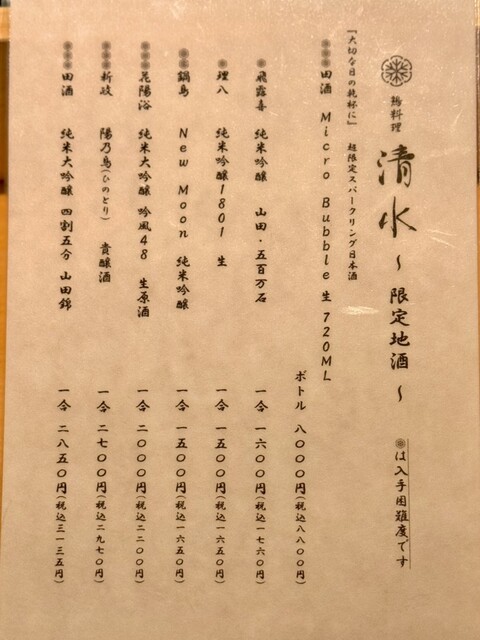 鶏料理 清水 〜 限定地酒 〜
は入手困難度です
『大切な日の乾杯に』 超限定スパークリング日本酒
田酒 Micro Bubble 生 720ML
ボトル 八〇〇〇円(税込八八〇〇円)
飛露喜 純米吟醸 山田・五百万石 一合 一六〇〇円(税込一七六〇円)
理八 純米吟醸1801 生 一合 一五〇〇円(税込一六五〇円)
鍋島 New Moon 純米吟醸 一合 一五〇〇円(税込一六五〇円)
花陽浴 純米大吟醸 吟風48 生原酒 一合 二〇〇〇円(税込二二〇〇円)
新政 陽乃鳥(ひのとり) 貴醸酒 一合 二七〇〇円(税込二九七〇円)
田酒 純米大吟醸 四割五分 山田錦 一合 二八五〇円(税込三一三五円)